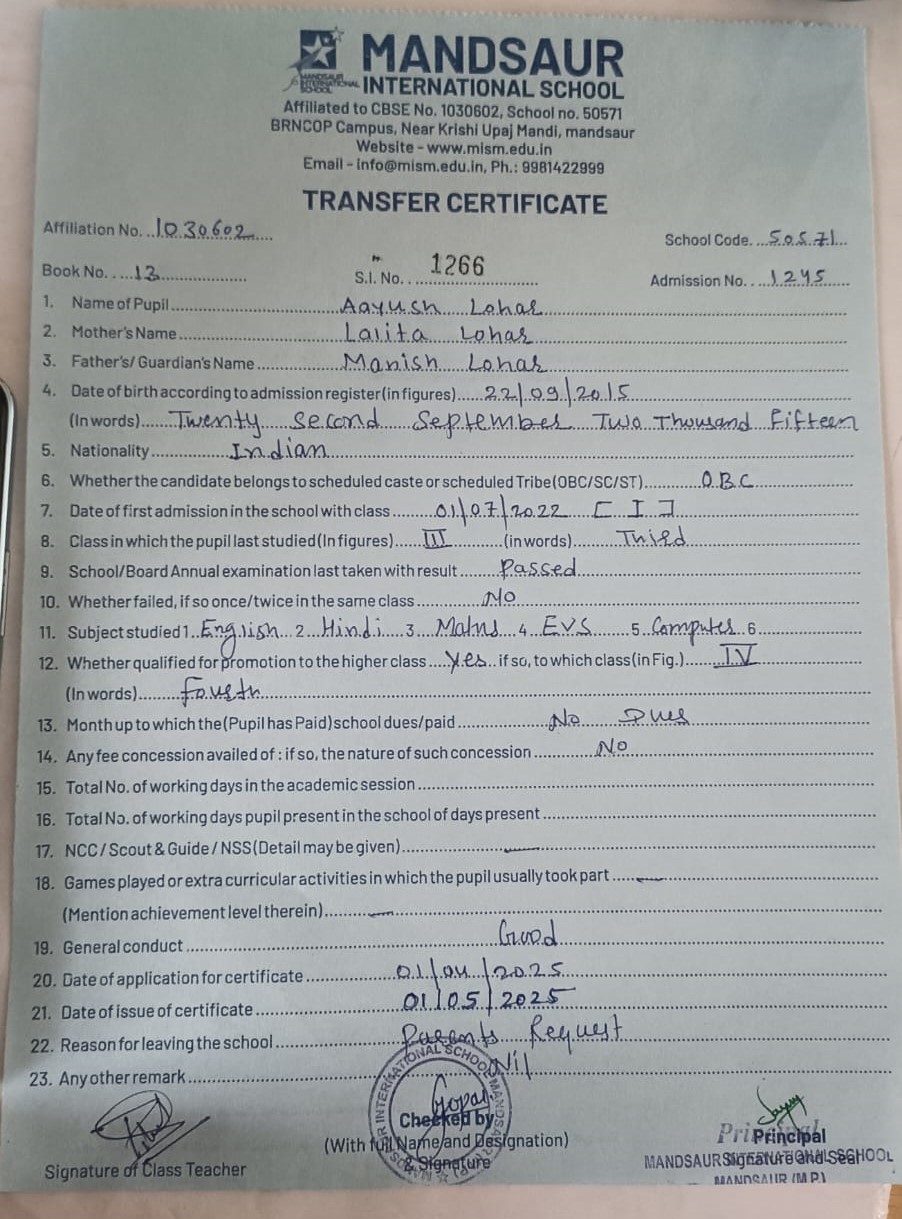 MANDSAUR
MANDSAUR INTERNATIONAL SCHOOL
INTERNATIONAL SCHOOL
Affiliated to CBSE No. 1030602, School no. 50571
BRNCOP Campus, Near Krishi Upaj Mandi, mandsaur
Website - www.mism.edu.in
Email - info@mism.edu.in, Ph.: 9981422999
TRANSFER CERTIFICATE
Affiliation No. 1030602 School Code. 50571
Book No. 13 S.I. No. 1266 Admission No. 1245
1. Name of Pupil Aayush Lohar
2. Mother's Name Lalita Lohar
3. Father's/ Guardian's Name Manish Lohar
4. Date of birth according to admission register (in figures) 22/09/2015
(In words) Twenty second September Two Thousand Fifteen
5. Nationality Indian
6. Whether the candidate belongs to scheduled caste or scheduled Tribe (OBC/SC/ST) OBC
7. Date of first admission in the school with class 01/07/2022 [ I ]
8. Class in which the pupil last studied (In figures) III (in words) Third
9. School/Board Annual examination last taken with result Passed
10. Whether failed, if so once/twice in the same class No
11. Subject studied 1. English 2. Hindi 3. Maths 4. EVS 5. Computer 6.
12. Whether qualified for promotion to the higher class Yes if so, to which class (in Fig.) IV
(In words) Fourth
13. Month up to which the (Pupil has Paid) school dues/paid No Dues
14. Any fee concession availed of : if so, the nature of such concession No
15. Total No. of working days in the academic session
16. Total No. of working days pupil present in the school of days present
17. NCC / Scout & Guide / NSS (Detail may be given) —
18. Games played or extra curricular activities in which the pupil usually took part —
(Mention achievement level therein) —
19. General conduct Good
20. Date of application for certificate 01/04/2025
21. Date of issue of certificate 01/05/2025
22. Reason for leaving the school Parents Request
23. Any other remark Nil
Gopal
Checked by
(With full Name and Designation)
& Signature
Signature of Class Teacher
Principal
Principal
Signature and Seal
MANDSAUR INTERNATIONAL SCHOOL
MANDSAUR (M.P.)